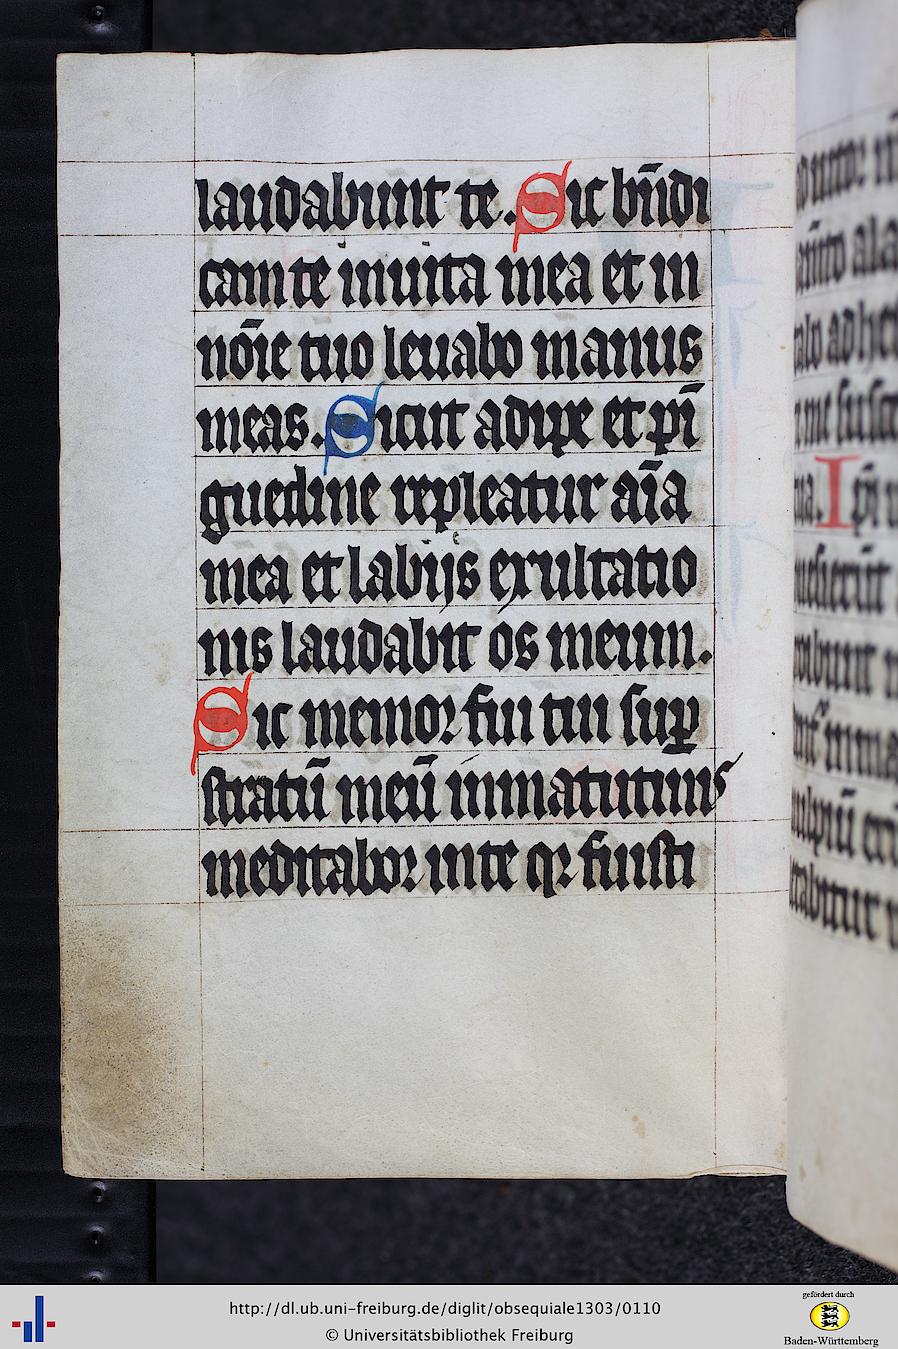 laudabunt te. Sic bn̄di
cam te inuita mea et in
nōie tuo leuabo manus
meas. Sicut adipe et pī
guedine repleatur aīa
mea et labijs exultatio
nis laudabit os meum.
Sic memor fui tui suꝑ
stratū meū inmatutinis
meditabor inte qr fuisti
ala
alo adhe
me susce
ua. Ipī
http://dl.ub.uni-freiburg.de/diglit/obsequiale1303/0110
© Universitätsbibliothek Freiburg
gefördert durch
Baden-Württemberg